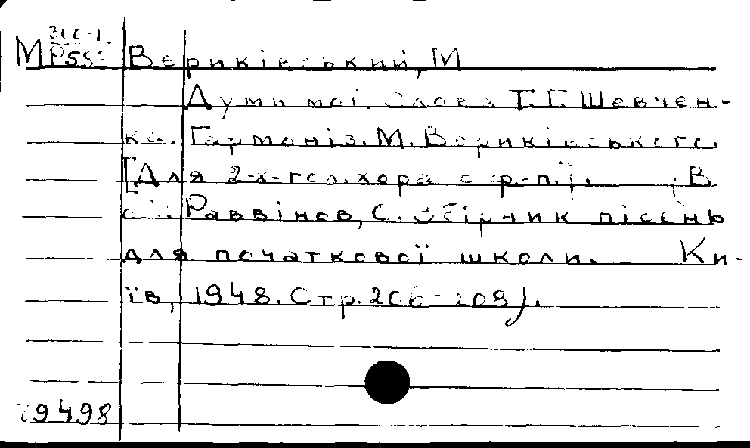 М Р55 Вериківський, М
Думи мої. Слова Т.Г. Шевчен-
ка. Гармоніз. М. Вериківського.
[Для 2-х-гол. хора с ф-п.]. В
Раввінов, С. Збірник пісень
для початкової школи. Ки-
їв, 1948. Стр. 206-208).
79498